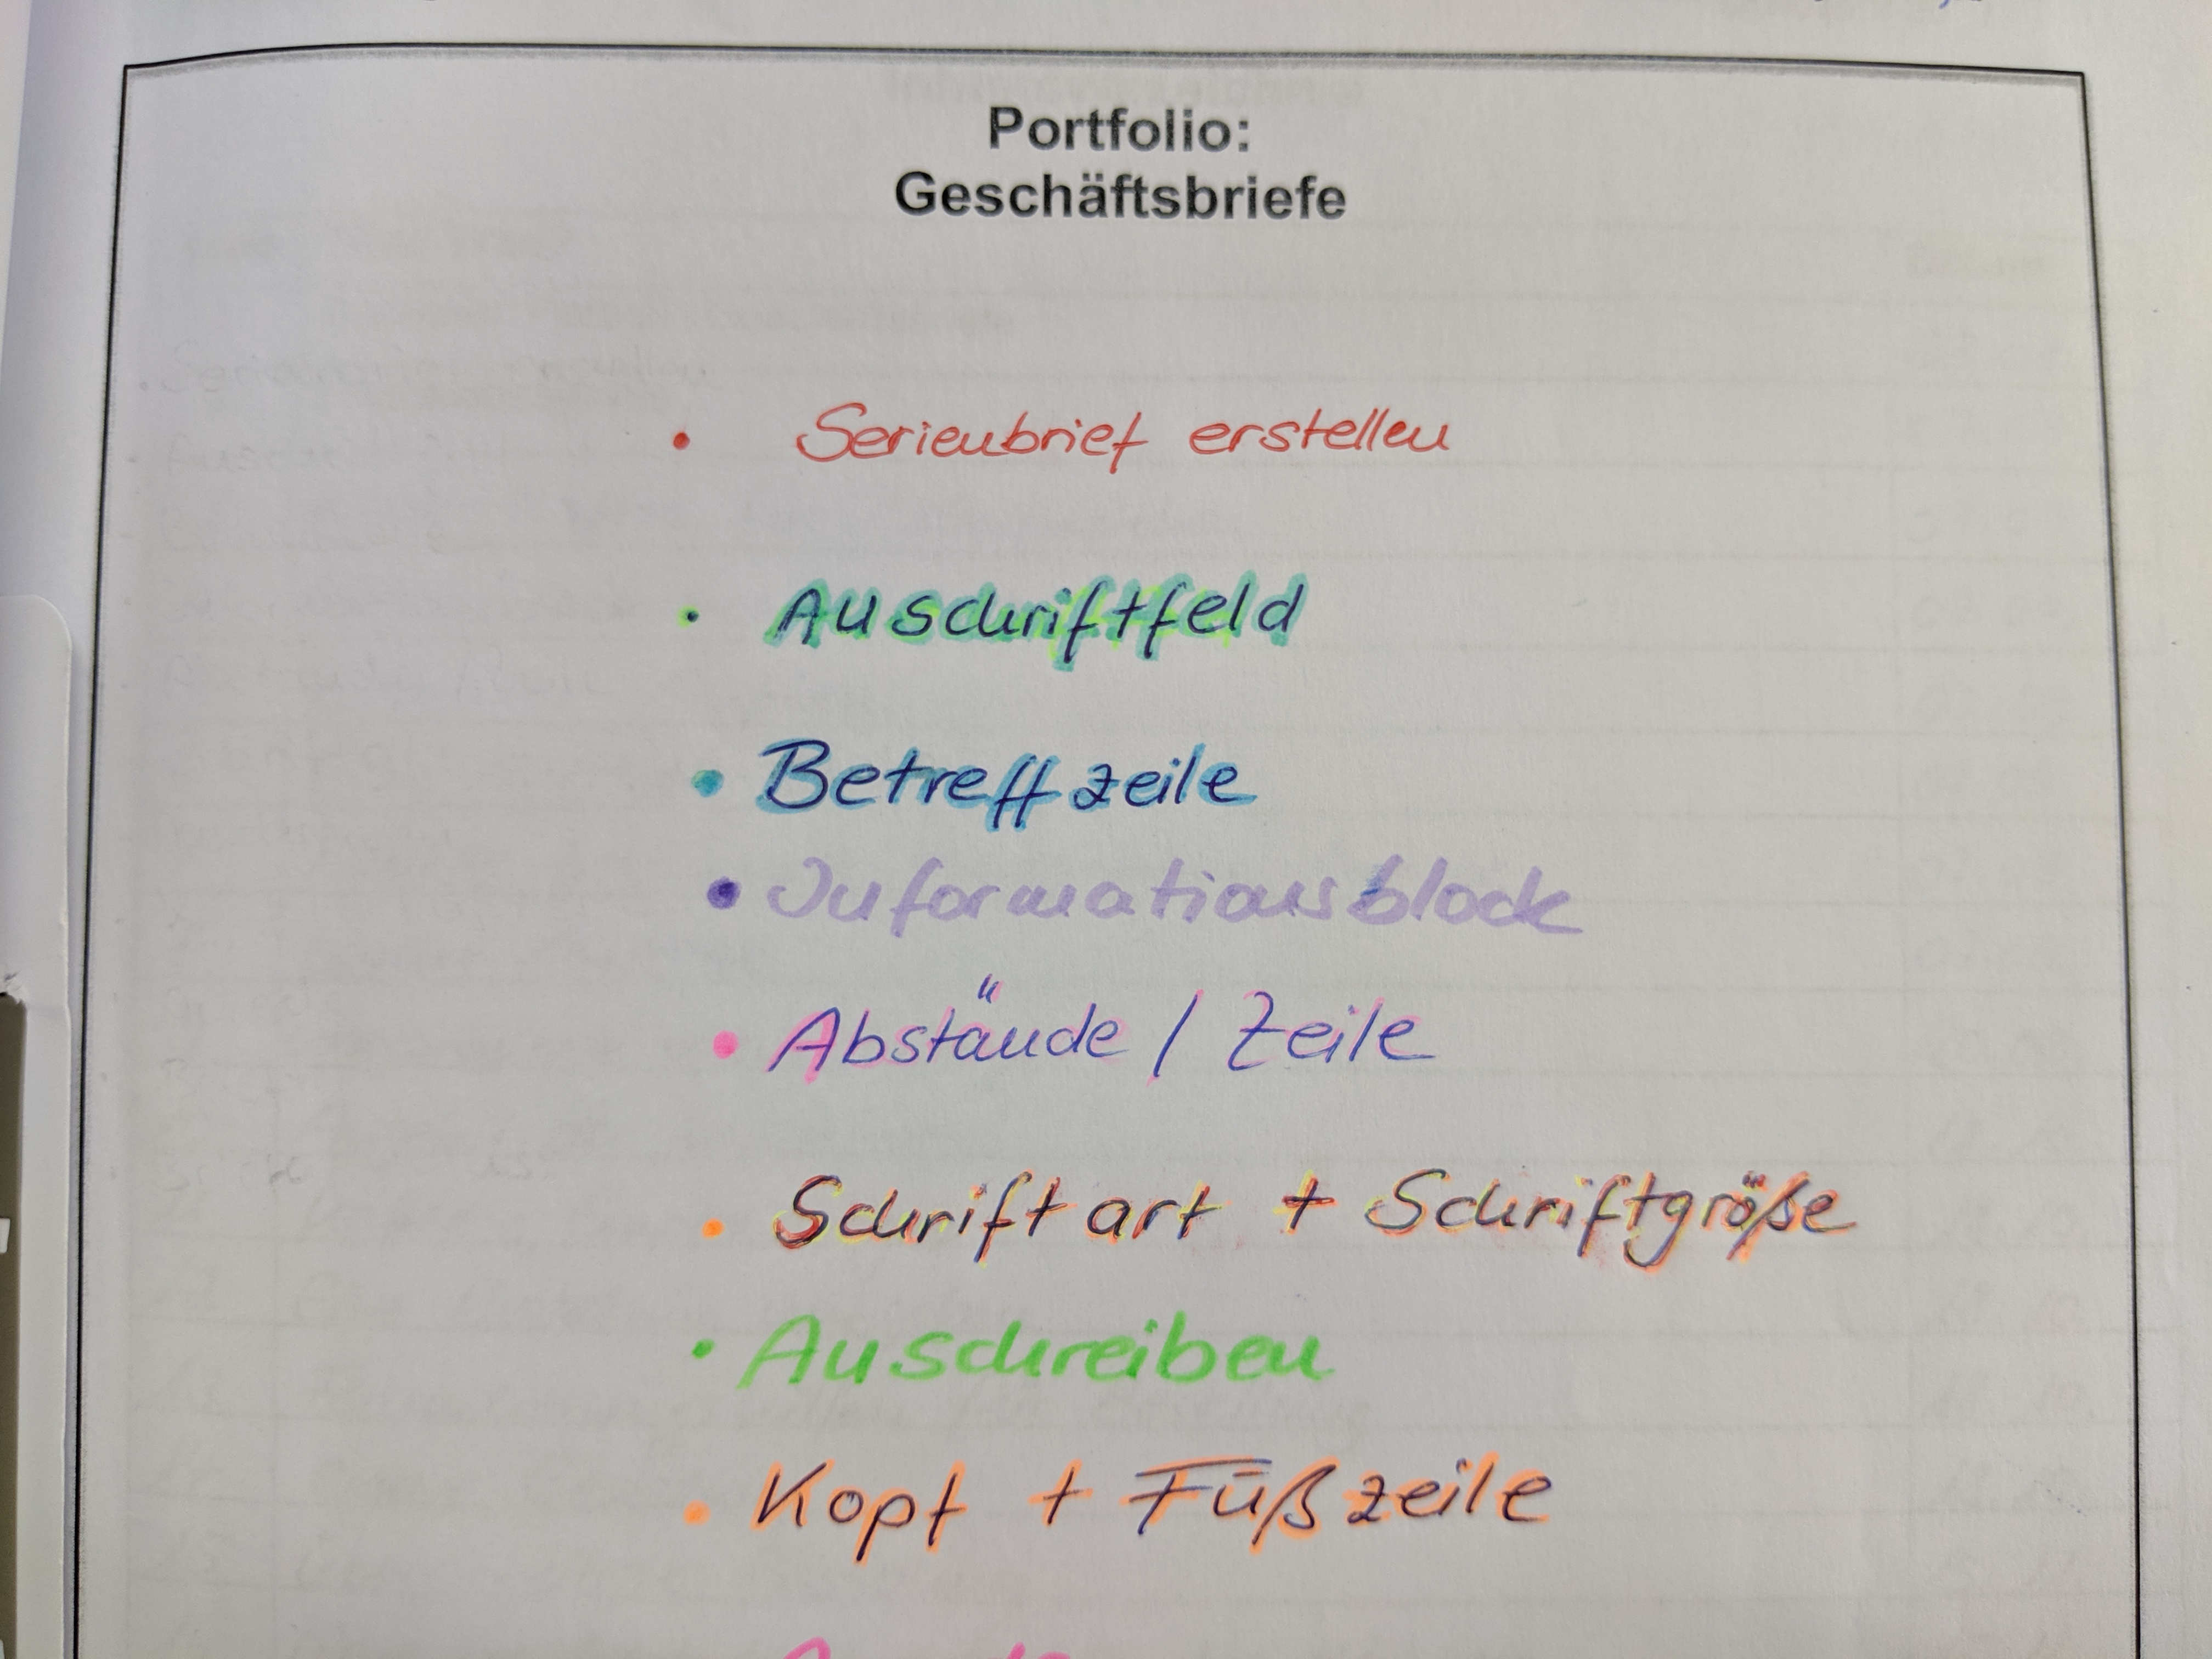 Portfolio:
Geschäftsbriefe
• Serienbrief erstellen
• Anschriftfeld
• Betreffzeile
• Informationsblock
• Abstände / Zeile
• Schriftart + Schriftgröße
• Anschreiben
• Kopf + Fußzeile